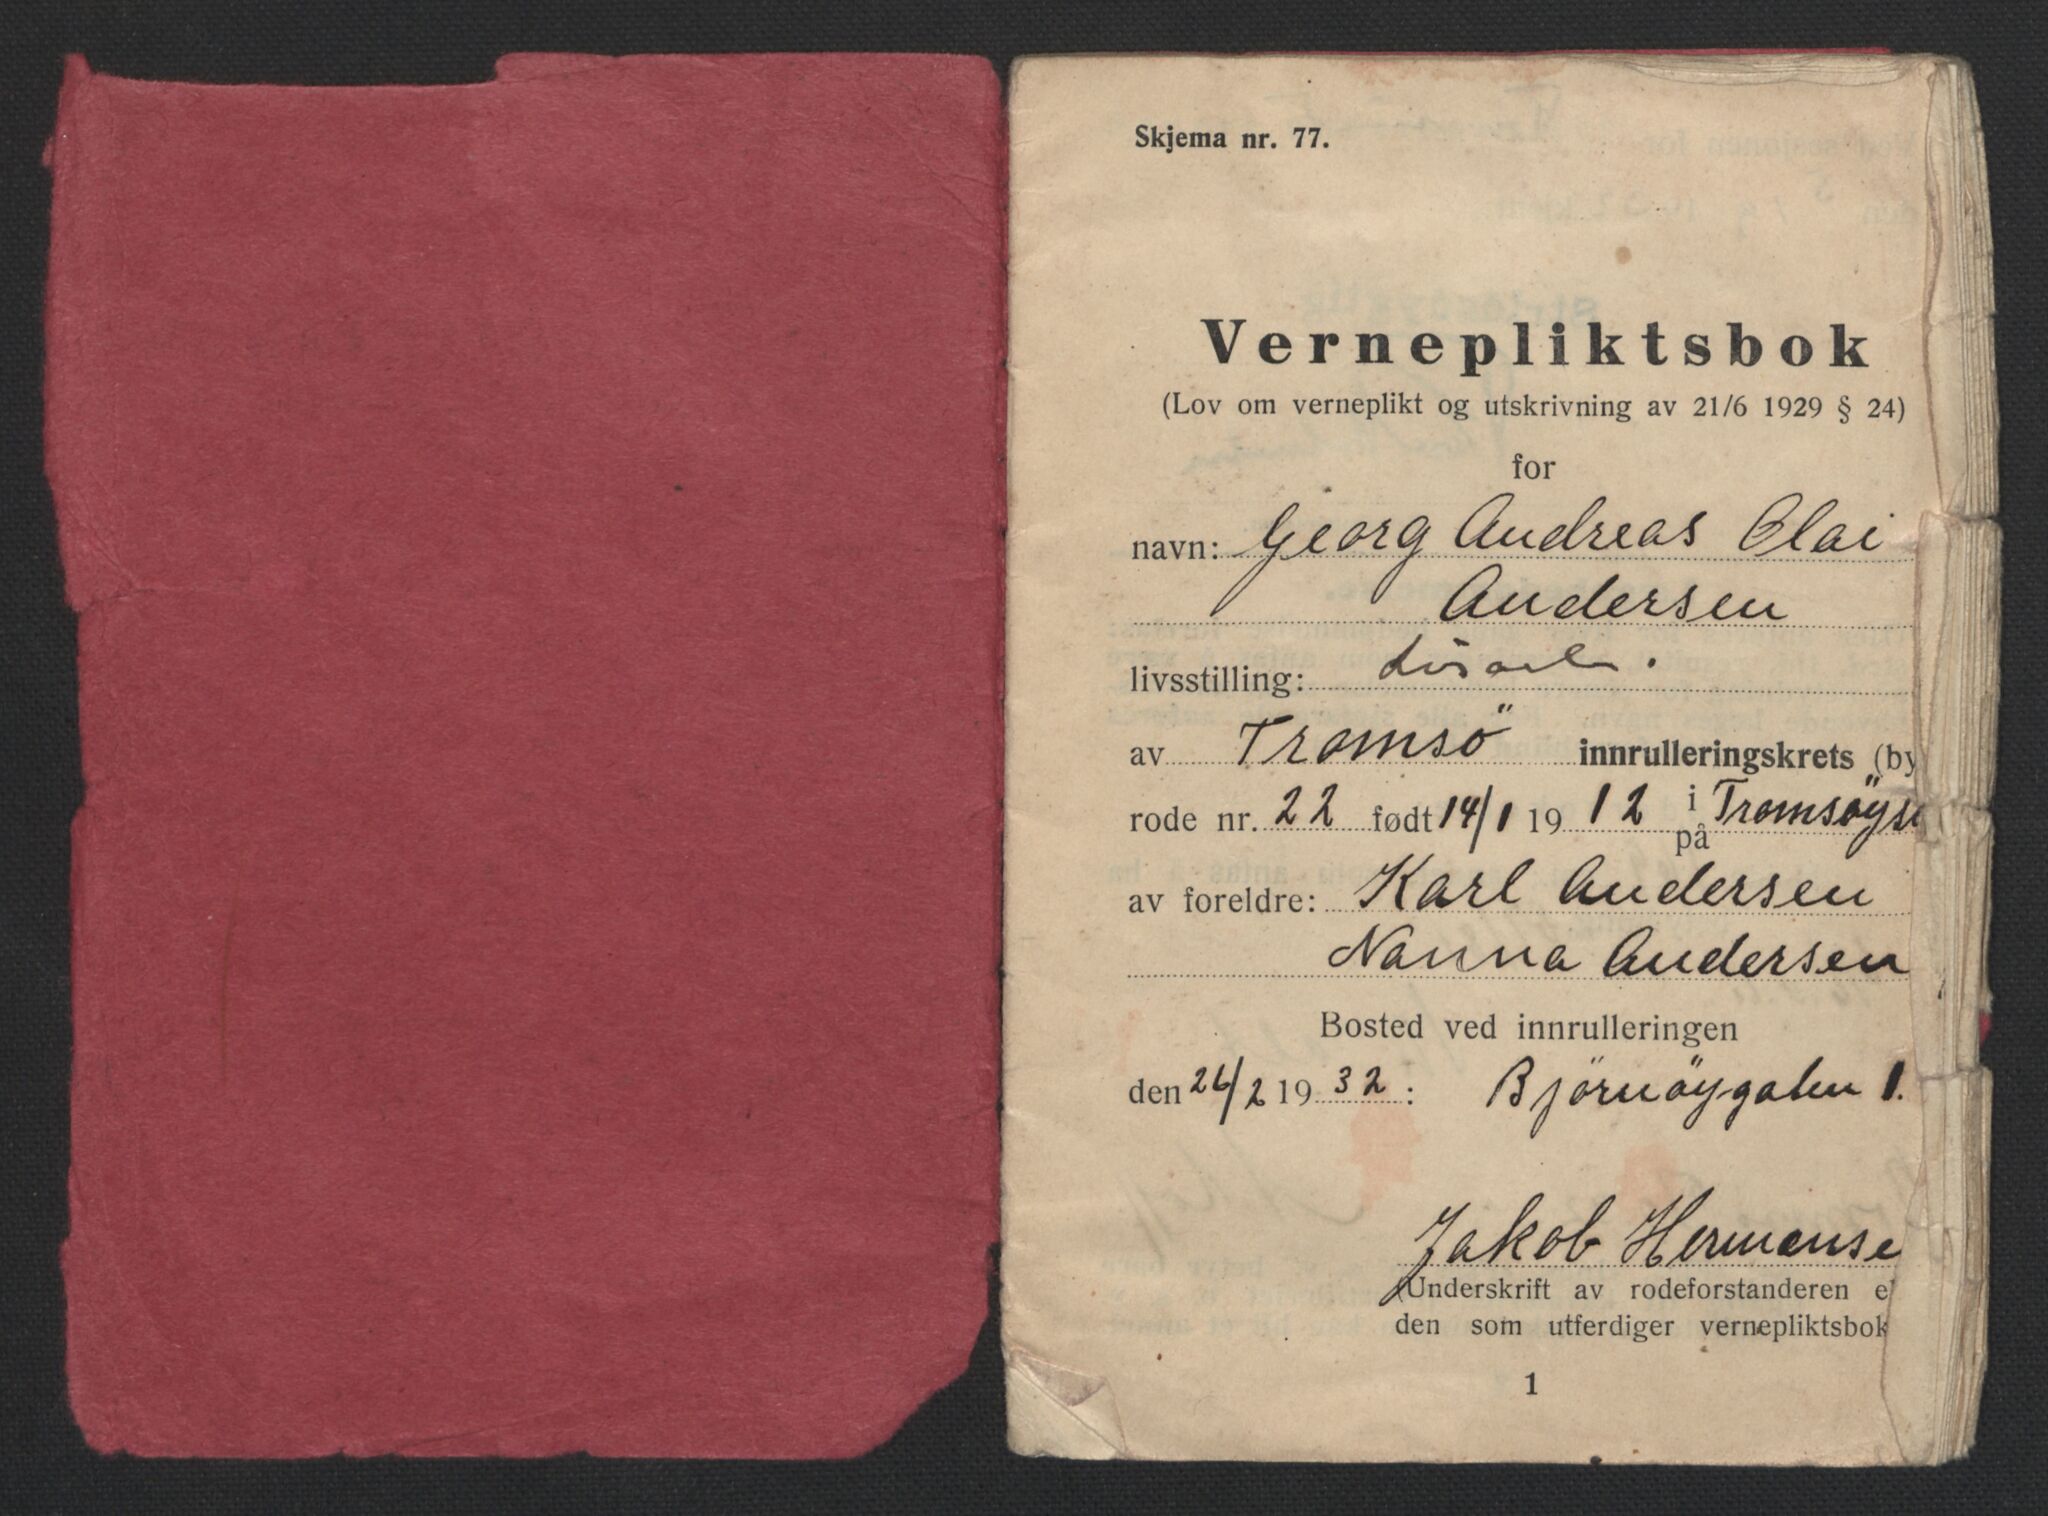 Skjema nr. 77.
Vernepliktsbok
(Lov om verneplikt og utskrivning av 21/6 1929 § 24)
for
navn: Georg Andreas Olai
Andersen
livsstilling:
av Tromsö innrulleringskrets (by
rode nr. 22 født 14/1 1912 i på Tromsöys
av foreldre: Karl Andersen
Nanna Andersen
Bosted ved innrulleringen
den 26/2 1932: Björnöygaten 1.
Jakob Hermanse
(Underskrift av rodeforstanderen e
den som utferdiger vernepliktsbok
1